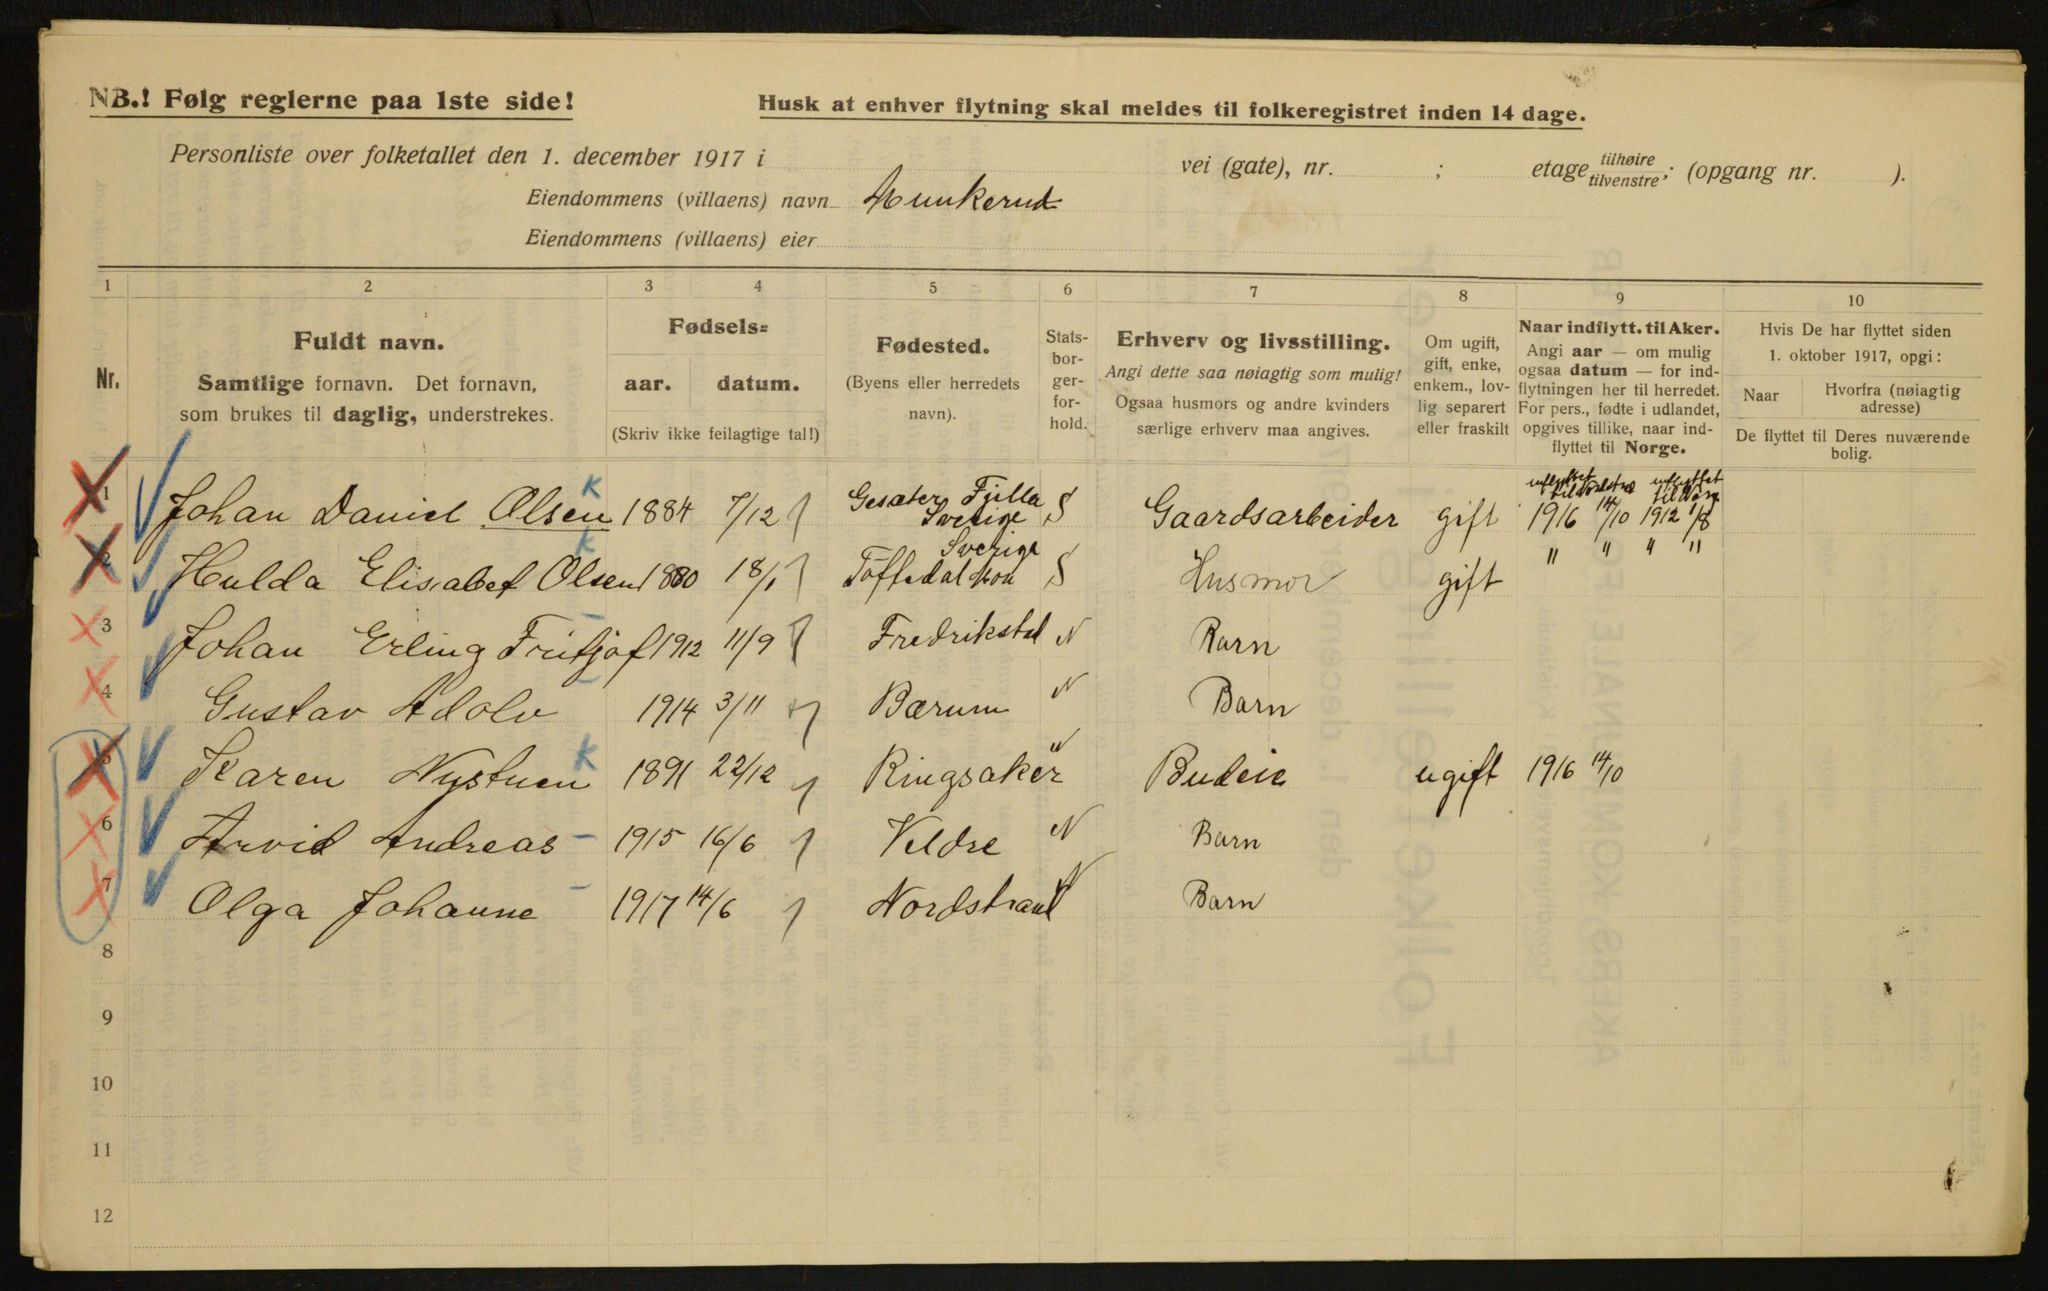 NB.! Følg reglerne paa 1ste side!
Husk at enhver flytning skal meldes til folkeregistret inden 14 dage.
Personliste over folketallet den 1. december 1917 i vei (gate), nr. ; etage tilhøire tilvenstre; (opgang nr. ).
Eiendommens (villaens) navn Munkerud
Eiendommens (villaens) eier
1 2 3 4 5 6 7 8 9 10
Nr.
Fuldt navn.
Samtlige fornavn. Det fornavn,
som brukes til daglig, understrekes.
Fødsels=
aar. datum.
(Skriv ikke feilagtige tal!)
Fødested.
(Byens eller herredets
navn).
Stats-
bor-
ger-
for-
hold.
Erhverv og livsstilling.
Angi dette saa nøiagtig som mulig!
Ogsaa husmors og andre kvinders
særlige erhverv maa angives.
Om ugift,
gift, enke,
enkem., lov-
lig separert
eller fraskilt
Naar indflytt. til Aker.
Angi aar — om mulig
ogsaa datum — for ind-
flytningen her til herredet.
For pers., fødte i udlandet,
opgives tillike, naar ind-
flyttet til Norge.
Hvis De har flyttet siden
1. oktober 1917, opgi:
Naar
Hvorfra (nøiagtig
adresse)
De flyttet til Deres nuværende
bolig.
1 Johan Daniel Olsen K 1884 7/12 Gesäter Sverige S Gaardsarbeider gift 1916 14/10 1912 1/8
2 Hulda Elisabet Olsen K 1880 18/1 Töftedal Sverige S Husmor gift " " " "
3 Johan Erling Fritjof 1912 11/9 Fredrikstad N Barn
4 Gustav Adolv 1914 3/11 Bærum N Barn
5 Karen Nystuen K 1891 22/12 Ringsaker N Budeie ugift 1916 14/10
6 Arvid Andreas 1915 16/6 Veldre N Barn
7 Olga Johanne 1917 14/6 Nordstrand N Barn
8
9
10
11
12